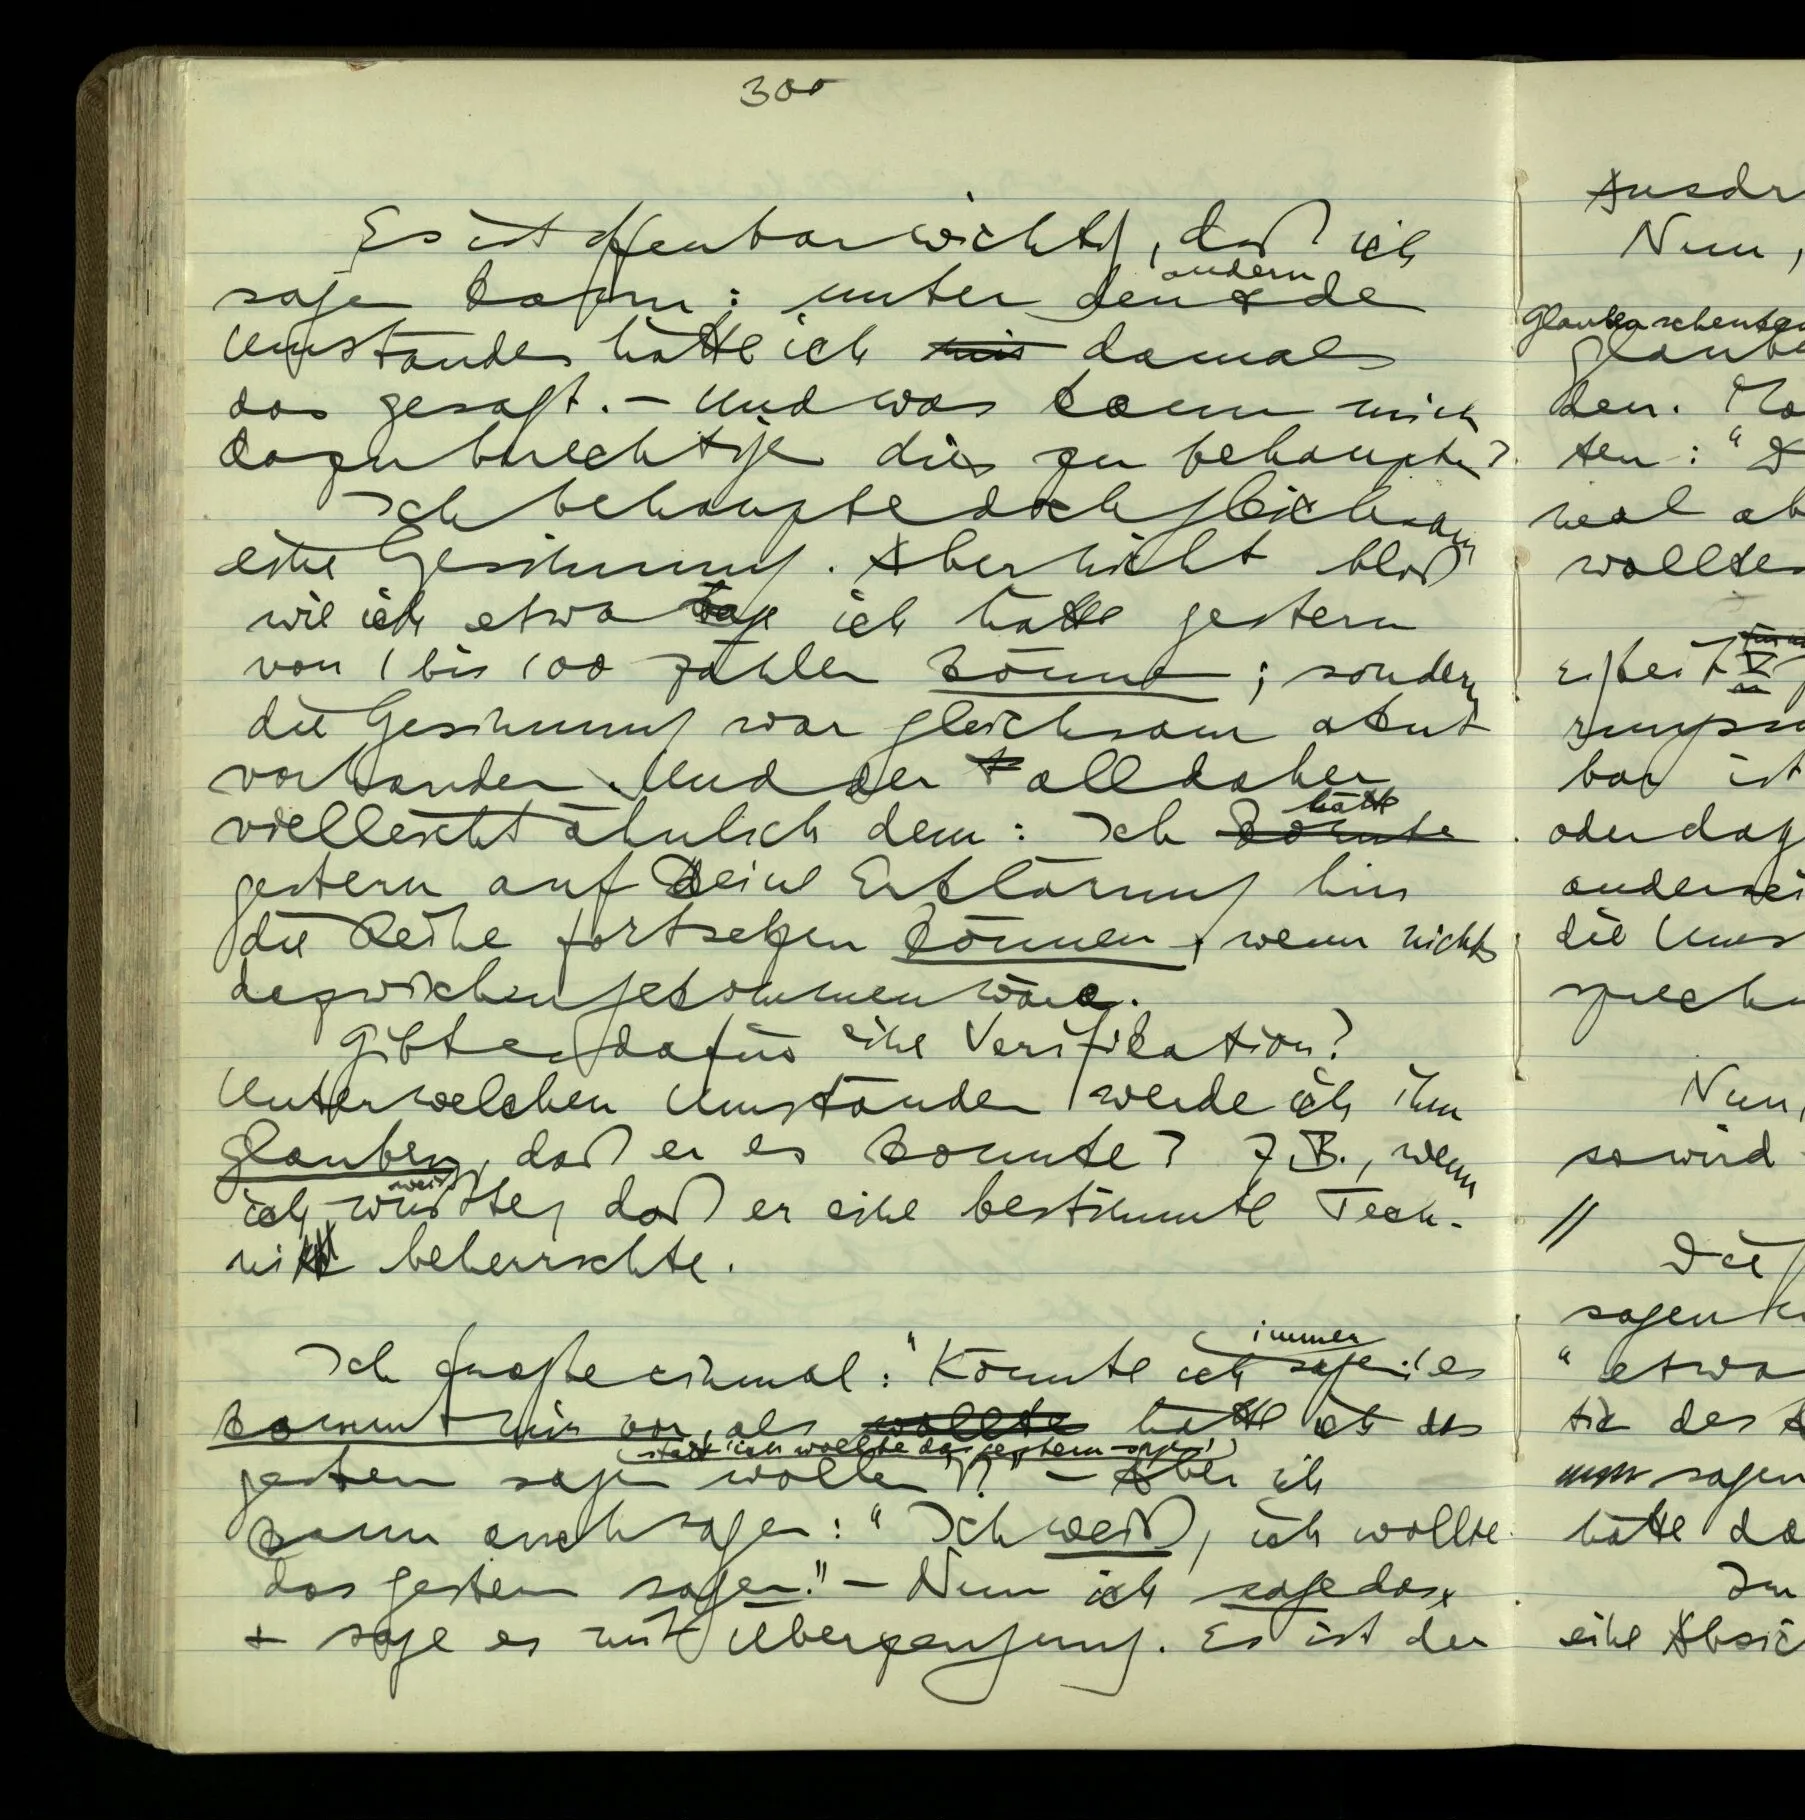 300
Es ist offenbar wichtig, daß ich
andern
sagen kann: unter den & de
Umständen hätte ich mir damals
das gesagt. – Und was kann mich
dazu berechtigen dies zu behaupten?
Ich behaupte doch gleichsam
eine Gesinnung. Aber nicht bloß
wie ich etwa sage ich hätte gestern
von 1 bis 100 zählen können; sondern
die Gesinnung war gleichsam akut
vorhanden. Und der Fall daher
hätte
vielleicht ähnlich dem: Ich konnte
gestern auf Deine Erklärung hin
die Reihe fortsetzen können, wenn nichts
dazwischengekommen wäre.
Gibt es dafür eine Verifikation?
Unter welchen Umständen werde ich ihm
glauben, daß er es konnte? Z.B., wenn
weiß
ich wüßte, daß er eine bestimmte Tech-
nik beherrschte.
immer
Ich fragte einmal: "Könnte ich sagen: 'es
kommt mir vor, als wollte hätte ich das
(statt 'ich wollte das gestern sagen')
gestern sagen wollen'?" – Aber ich
kann auch sagen: "Ich weiß, ich wollte
das gestern sagen." – Nun ich sage das,
+ sage es mit Überzeugung. Es ist der
Ausdr
Nun,
Glaubenschenken
glaube
den. Ma
ten: "D
mal ab
wollte
bar ist
oder dag
anderei
die Ums
spreche
Nun,
so wird
//
Die
sagen k
"etwa
tik des
sagen
hätte da
In
eine Absic